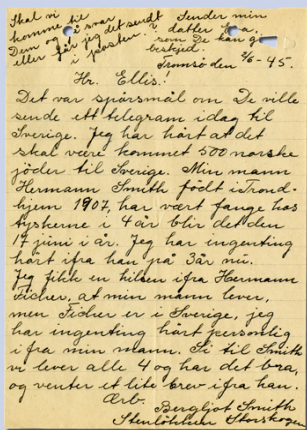 Skal vi
komme til
Dem og i svar
eller får jeg det sendt
i posten?
Sender min
datter
som De kan gi
beskjed.
Tromsö den 5/6-45.
Hr. Ellis!
Det var spörsmål om De ville
sende ett telegram idag til
Sverige. Jeg har hårt at det
skal være kommet 500 norske
jöder til Sverige. Min mann
Hermann Smith födt i Trond-
hjem 1907, har vært fange hos
tyskerne i 4 år blir det den
17 juni i år. Jeg har ingenting
hårt ifra han på 3år nü.
Jeg fikk en hilsen ifra Hermann
Fischer, at min mann lever,
men Fischer er i Sverige, jeg
har ingenting hårt personlig
ifra min mann. Si til Smith
vi lever alle 4 og har det bra,
og venter et lite brev ifra han.
Ærb.
Bergljot Smith
Storskogen